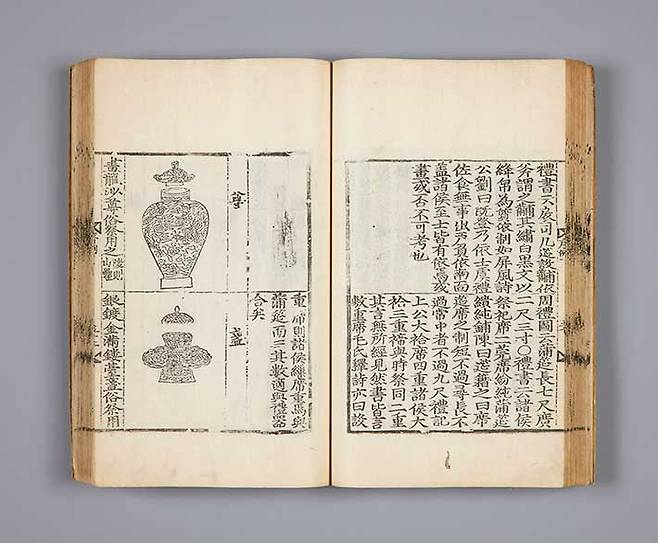 禮書云扆司几筵設黼依
斧謂之黼其繡白黑文以
絳帛爲質依制如屛風詩
公劉曰旣登乃依士虞禮
佐食無事出戶負依南面
蓋諸侯至士皆有依焉或
畫或否不可考也
周禮圖云蒲筵長七尺廣
二尺三寸○禮書云諸侯
祭祀席二莞席紛純蒲筵
繢純鋪陳曰筵藉之曰席
筵席之制短不過尋長不
過常中者不過九尺禮記
上公大祫席四重諸侯大
祫三重禘與時祭同二重
其言無所經見然書皆言
敷重席毛氏釋詩亦曰設
尊
畫龍沙尊俗祭用之
陵則
山罍
重席則諸侯繼席重焉與
蒲筵而三其數適與禮器
合矣
盞
銀鍍金滿鏤臺盞俗祭用